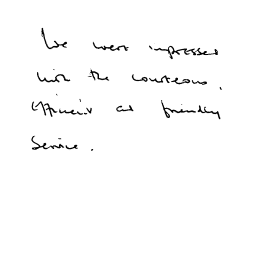 We were impressed
with the courteous,
efficient and friendly
service.